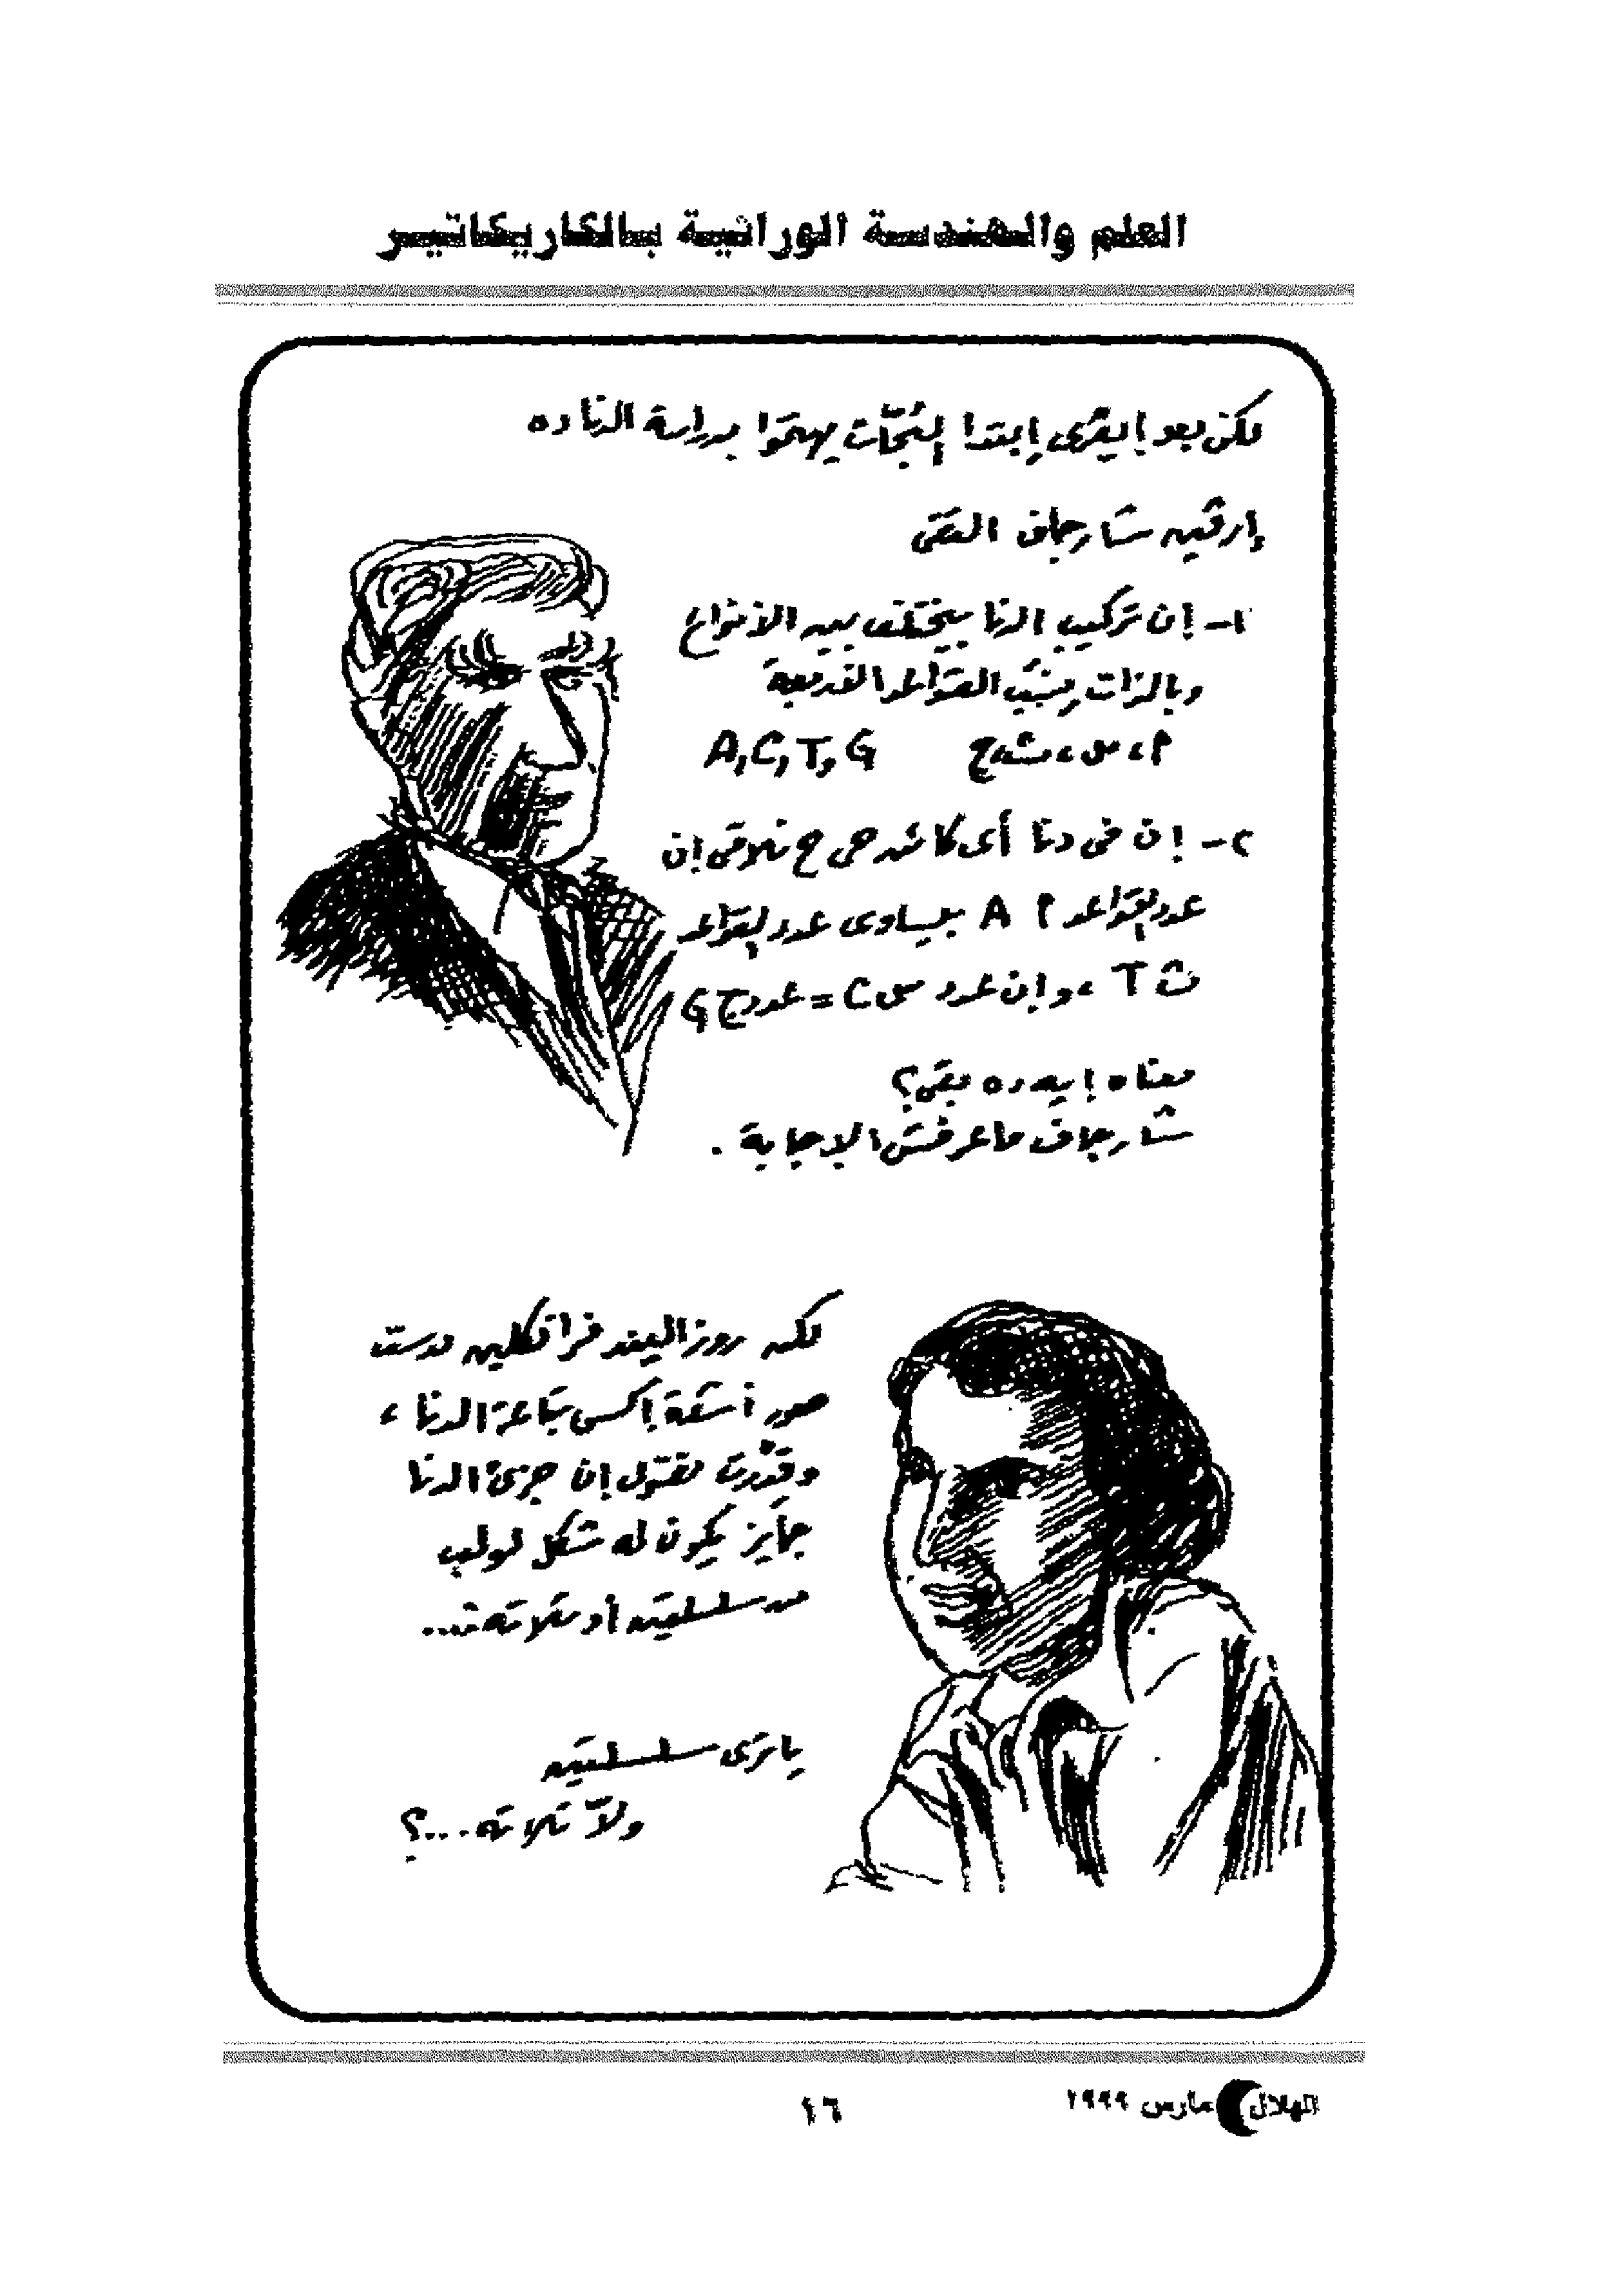 العلم والهندسة الوراثية بالكاريكاتير
لكن بعد إيڤرى إبتدا البُحّاث يهتموا بدراسة الدنا ده
إرڤين شارجاف التقى
١- إن تركيب الدنا بيختلف بين الأنواع
وبالذات نِسَب القواعد القديمة
أ، س، ث، ج A, C, T, G
٢- إن فى دنا أى كائن حى ح نلاقى إن
عدد القواعد أ A بيساوى عدد القواعد
ث T ، وإن عدد س C = عدد ج G
معناه إيه ده بقى؟
شارجاف ماعرفش الإجابة .
لكن روزاليند فرانكلين درست
صور أشعة إكس بتاعة الدنا ،
وقدرت تقول إن جزئ الدنا
جايز يكون له شكل لولب
من سلسلتين أو تلاتة ...
يا ترى سلسلتين
ولاّ تلاتة ...؟
الهلال مارس ١٩٩٩
١٦